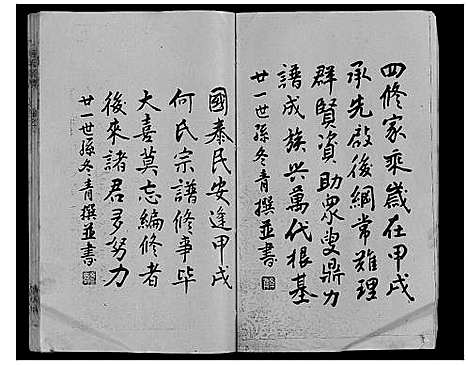 四修家乘歲在甲戌
承先啟後綱常難理
群賢資助眾叟鼎力
譜成族興萬代根基
廿一世孫冬青撰並書
國泰民安逢甲戌
何氏宗譜修事畢
大喜莫忘編修者
後來諸君多努力
廿一世孫冬青撰並書